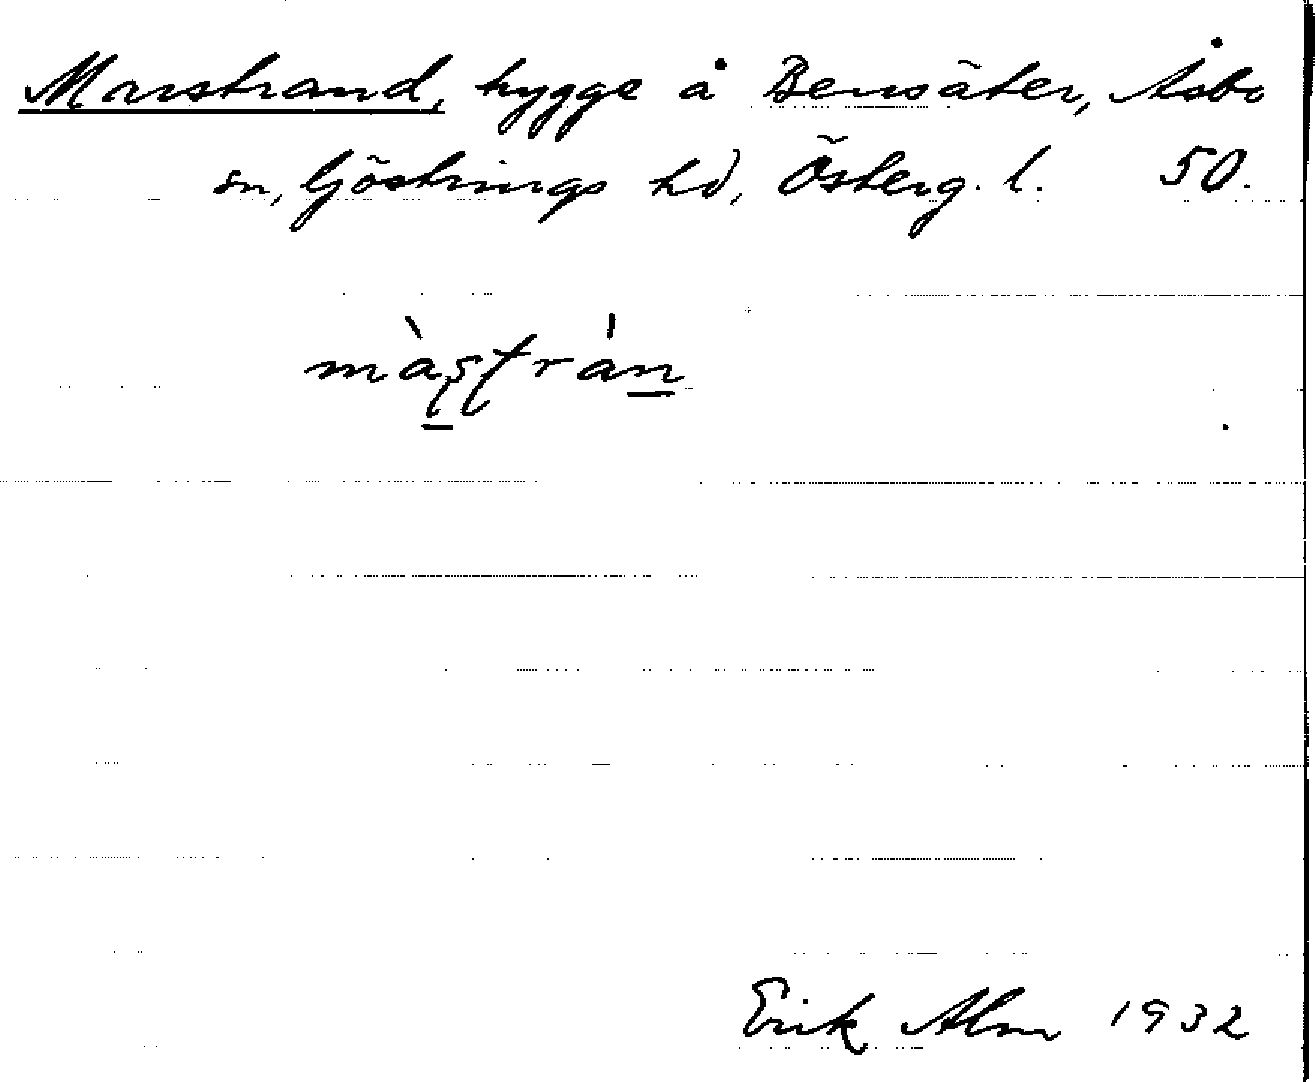 Marstrand, hygge å Bensäter, Åsbo
sn, Göstrings hd, Österg. l. 50.
Erik Alm 1932